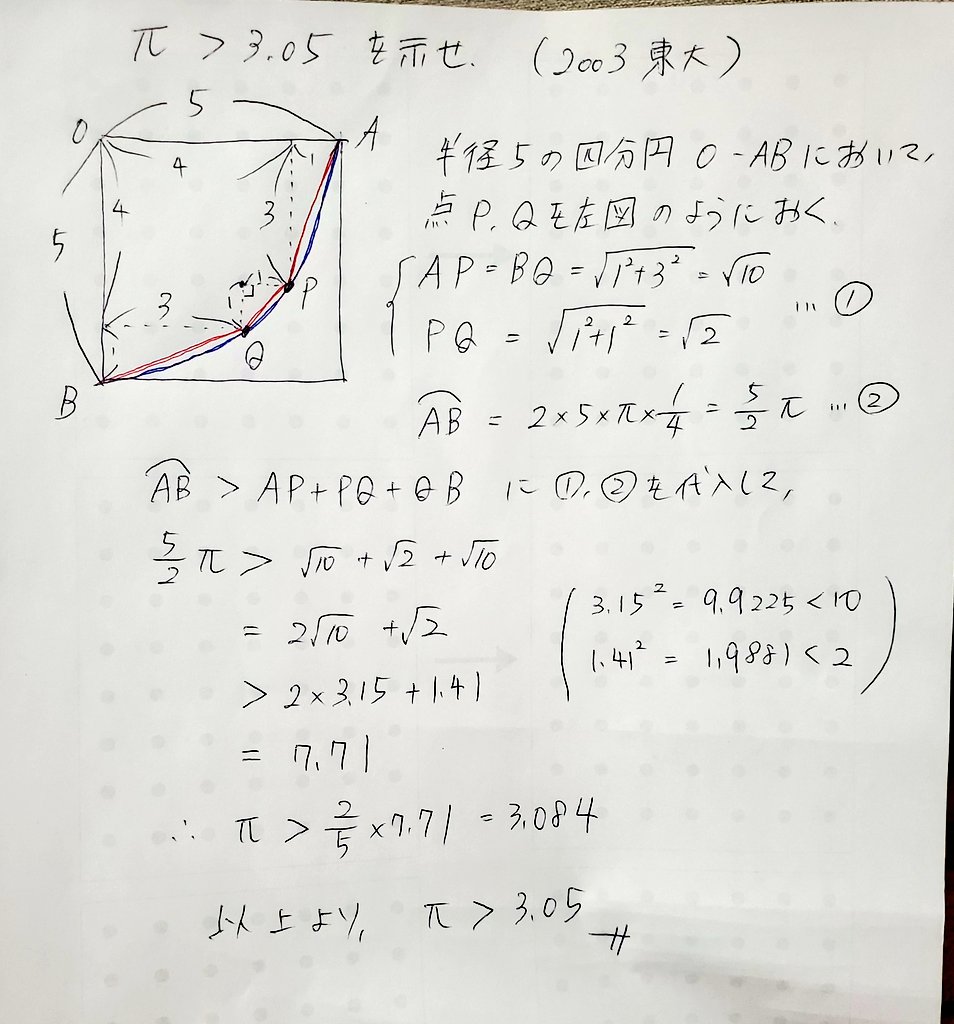 π > 3.05 を示せ. (2003 東大)
5
O A
4 1
4 3
5
1
3 P
Q
B
半径5の四分円 O-ABにおいて,
点P,Qを左図のようにおく.
AP = BQ = √(1²+3²) = √10
PQ = √(1²+1²) = √2 … ①
⌒AB = 2×5×π×1/4 = 5/2 π … ②
⌒AB > AP+PQ+QB に①,②を代入して,
5/2 π > √10 + √2 + √10
= 2√10 + √2
(3.15² = 9.9225 < 10
1.41² = 1.9881 < 2)
> 2×3.15+1.41
= 7.71
∴ π > 2/5 ×7.71 = 3.084
以上より, π > 3.05